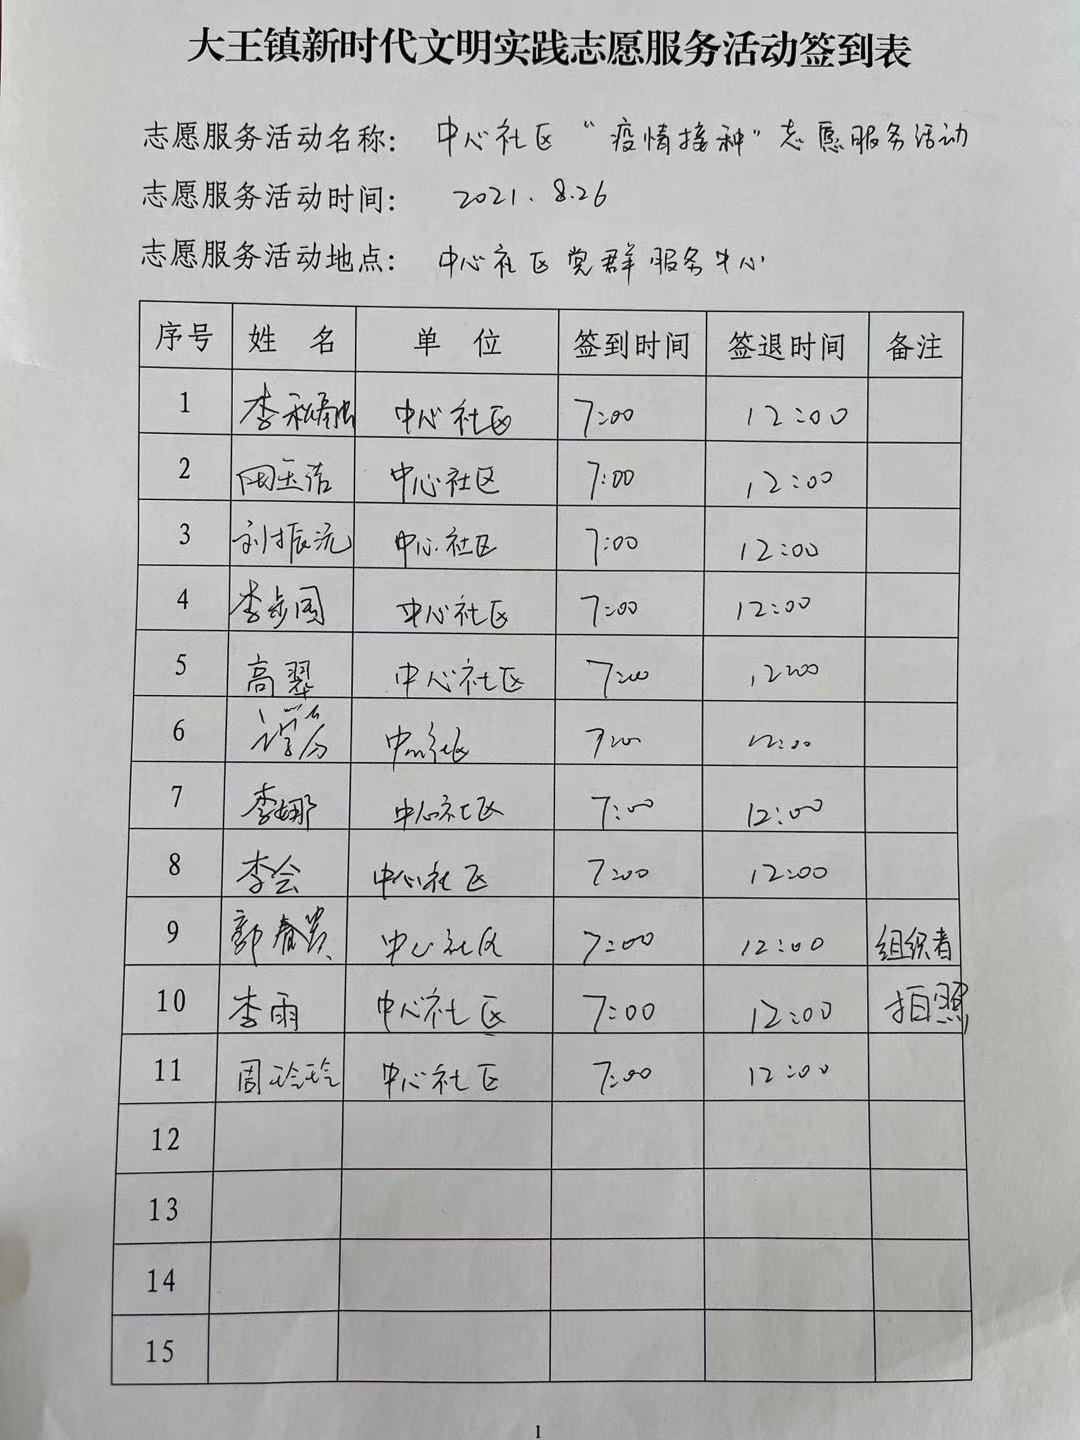 大王镇新时代文明实践志愿服务活动签到表
志愿服务活动名称： 中心社区“疫情接种”志愿服务活动
志愿服务活动时间： 2021.8.26
志愿服务活动地点： 中心社区党群服务中心
序号 姓名 单位 签到时间 签退时间 备注
1 李 中心社区 7:00 12:00
2 周玉洁 中心社区 7:00 12:00
3 刘振沅 中心社区 7:00 12:00
4 李 中心社区 7:00 12:00
5 高翠 中心社区 7:00 12:00
6 中心社区 7:00 12:00
7 李娜 中心社区 7:00 12:00
8 李会 中心社区 7:00 12:00
9 郭春 中心社区 7:00 12:00 组织者
10 李雨 中心社区 7:00 12:00 拍照
11 周玲玲 中心社区 7:00 12:00
12
13
14
15
1